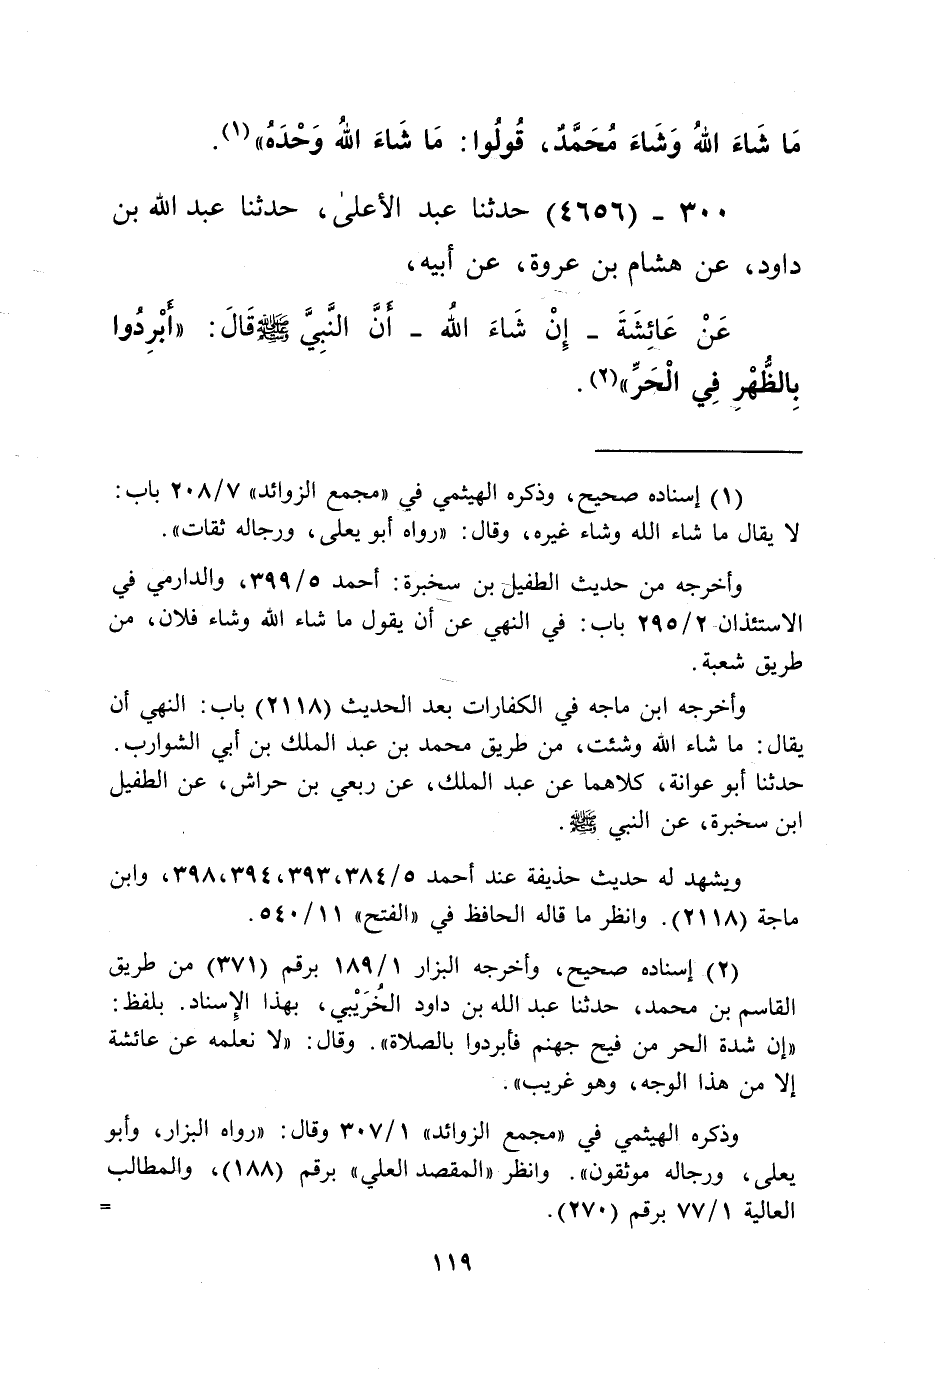 مَا شَاءَ اللهُ وَشَاءَ مُحَمَّدٌ، قُولُوا: مَا شَاءَ اللهُ وَحْدَهُ»(١).
٣٠٠ ـ (٤٦٥٦) حدثنا عبد الأعلىٰ، حدثنا عبد الله بن
داود، عن هشام بن عروة، عن أبيه،
عَنْ عَائِشَةَ ـ إِنْ شَاءَ اللهُ ـ أَنَّ النَّبِيَّ ﷺ قَالَ: «أَبْرِدُوا
بِالظُّهْرِ فِي الْحَرِّ»(٢).
(١) إسناده صحيح، وذكره الهيثمي في «مجمع الزوائد» ٢٠٨/٧ باب:
لا يقال ما شاء الله وشاء غيره، وقال: «رواه أبو يعلى، ورجاله ثقات».
وأخرجه من حديث الطفيل بن سخبرة: أحمد ٣٩٩/٥، والدارمي في
الاستئذان ٢٩٥/٢ باب: في النهي عن أن يقول ما شاء الله وشاء فلان، من
طريق شعبة.
وأخرجه ابن ماجه في الكفارات بعد الحديث (٢١١٨) باب: النهي أن
يقال: ما شاء الله وشئت، من طريق محمد بن عبد الملك بن أبي الشوارب.
حدثنا أبو عوانة، كلاهما عن عبد الملك، عن ربعي بن حراش، عن الطفيل
ابن سخبرة، عن النبي ﷺ.
ويشهد له حديث حذيفة عند أحمد ٣٨٤/٥، ٣٩٣، ٣٩٤، ٣٩٨، وابن
ماجة (٢١١٨). وانظر ما قاله الحافظ في «الفتح» ٥٤٠/١١.
(٢) إسناده صحيح، وأخرجه البزار ١٨٩/١ برقم (٣٧١) من طريق
القاسم بن محمد، حدثنا عبد الله بن داود الخُرَيْبي، بهذا الإِسناد. بلفظ:
«إن شدة الحر من فيح جهنم فأبردوا بالصلاة». وقال: «لا نعلمه عن عائشة
إلا من هذا الوجه، وهو غريب».
وذكره الهيثمي في «مجمع الزوائد» ٣٠٧/١ وقال: «رواه البزار، وأبو
يعلى، ورجاله موثقون». وانظر «المقصد العلي» برقم (١٨٨)، والمطالب
العالية ٧٧/١ برقم (٢٧٠). =
١١٩